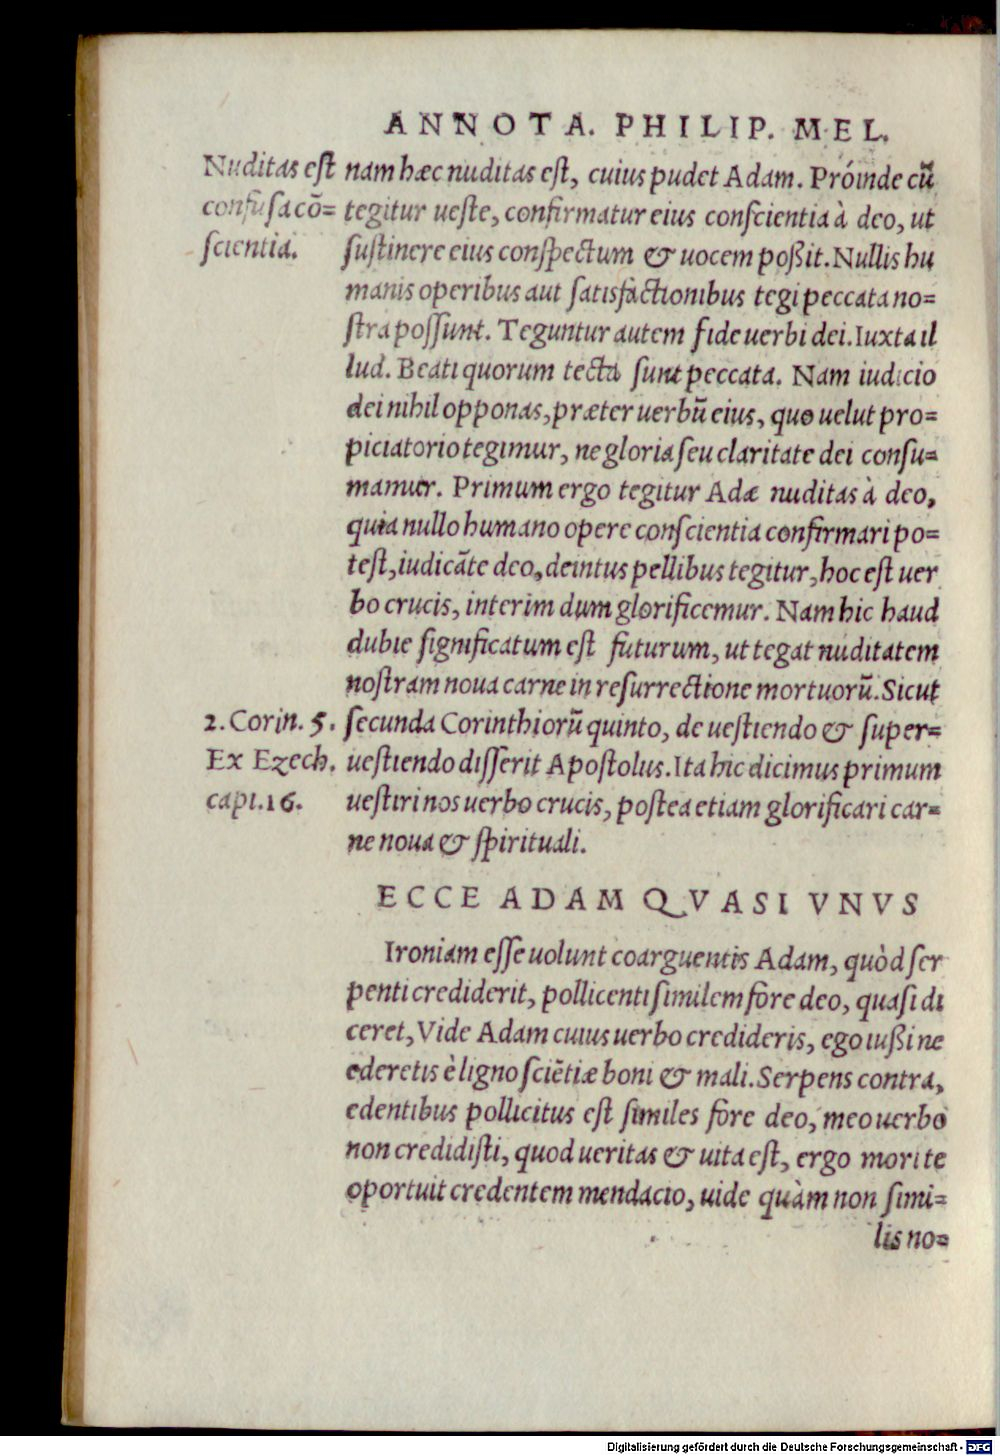 ANNOTA. PHILIP. MEL.
Nuditas est
confusa cō=
scientia.
nam hæc nuditas est, cuius pudet Adam. Próinde cũ
tegitur ueste, confirmatur eius conscientia à deo, ut
sustinere eius conspectum & uocem poßit. Nullis hu
manis operibus aut satisfactionibus tegi peccata no=
stra possunt. Teguntur autem fide uerbi dei. Iuxta il
lud. Beati quorum tecta sunt peccata. Nam iudicio
dei nihil opponas, præter uerbũ eius, quo uelut pro=
piciatorio tegimur, ne gloria seu claritate dei consu=
mamur. Primum ergo tegitur Adæ nuditas à deo,
quia nullo humano opere conscientia confirmari po=
test, iudicãte deo, deintus pellibus tegitur, hoc est uer
bo crucis, interim dum glorificemur. Nam hic haud
dubie significatum est futurum, ut tegat nuditatem
nostram noua carne in resurrectione mortuorũ. Sicut
secunda Corinthiorũ quinto, de uestiendo & super=
uestiendo disserit Apostolus. Ita hic dicimus primum
uestiri nos uerbo crucis, postea etiam glorificari car=
ne noua & spirituali.
2. Corin. 5.
Ex Ezech.
capi. 16.
ECCE ADAM QVASI VNVS
Ironiam esse uolunt coarguentis Adam, quòd ser
penti crediderit, pollicenti similem fore deo, quasi di
ceret, Vide Adam cuius uerbo credideris, ego iußi ne
ederetis è ligno sciẽtiæ boni & mali. Serpens contra,
edentibus pollicitus est similes fore deo, meo uerbo
non credidisti, quod ueritas & uita est, ergo mori te
oportuit credentem mendacio, uide quàm non simi=
lis no=
Digitalisierung gefördert durch die Deutsche Forschungsgemeinschaft - DFG